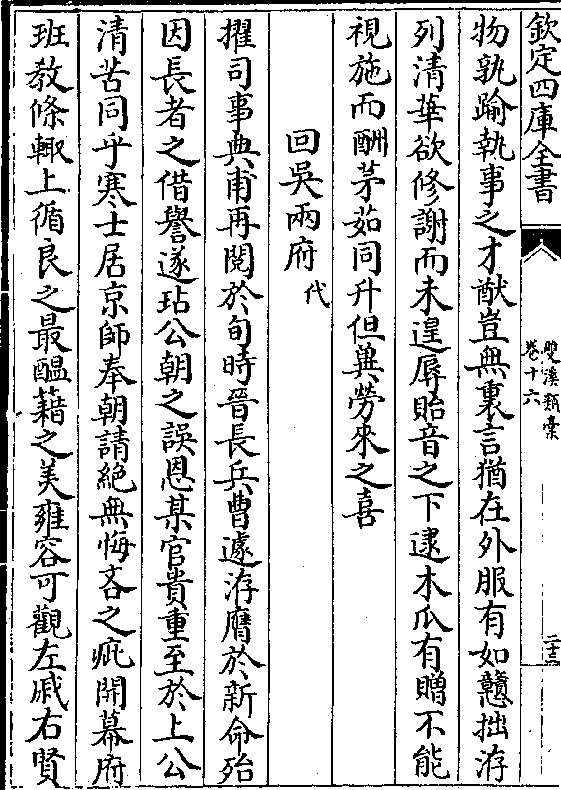 欽定四庫全書
雙溪類槀
卷十六
二十三
物孰踰執事之才猷豈無裏言猶在外服有如戇拙洊
列清華欲修謝而未遑辱貽音之下逮木瓜有贈不能
視施而酬茅茹同升但冀勞來之喜
回吳兩府代
擢司事典甫再閱於旬時晉長兵曹遽洊膺於新命殆
因長者之借譽遂玷公朝之誤恩某官貴重至於上公
清苦同乎寒士居京師奉朝請絶無悔吝之疵開幕府
班教條輙上循良之最醖藉之美雍容可觀左戚右賢